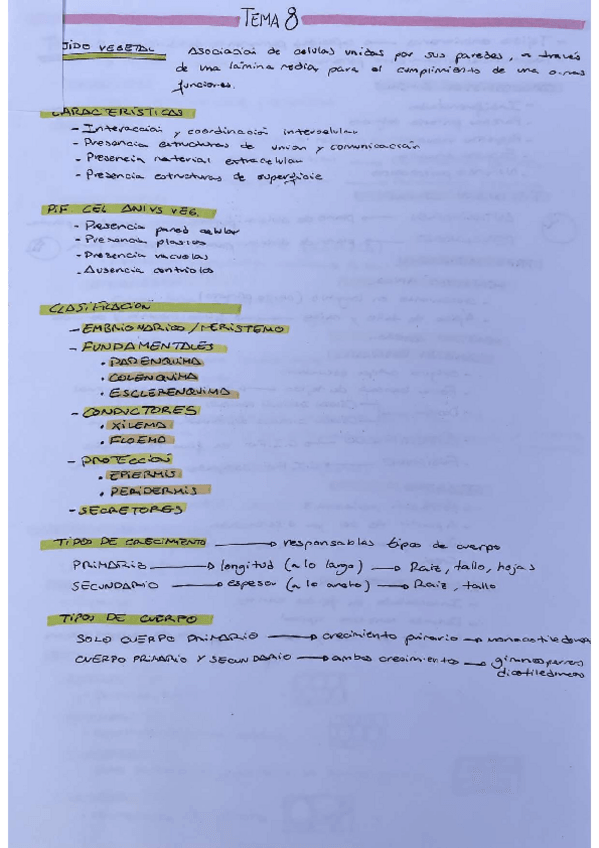 TEMA 8
JIDO VEGETAL Asociacion de celulas unidas por sus paredes, a través
de una lamina media para el cumplimiento de una o mas
funciones.
CARACTERÍSTICAS
- Interaccion y coordinación intercelular
- Presencia estructuras de union y comunicación
- Presencia material extracelular
- Presencia estructuras de superficie
DIF CEL ANIVS VEG.
- Presencia pared celular
- Presencia plastos
- Presencia vacuolas
- Ausencia centriolos
CLASIFICACION
- EMBRIONARIOO / MERISTEMO
- FUNDAMENTALES
• PARENQUIMA
• COLENQUIMA
• ESCLERENQUIMA
- CONDUCTORES
• XILEMA
• FLOEMA
- PROTECCION
• EPIERMIS
• PERIDERMIS
- SECRETORES
TIPOS DE CRECIMIENTO → responsables tipos de cuerpo
PRIMARIO → longitud (a lo largo) → Raiz, tallo, hojas
SECUNDARIO → espesor (a lo ancho) → Raiz, tallo
TIPOS DE CUERPO
SOLO CUERPO PRIMARIO → crecimiento primario → monocotiledoneas
CUERPO PRIMARIO Y SECUNDARIO → ambos crecimientos → gimnospermas
dicotiledoneas